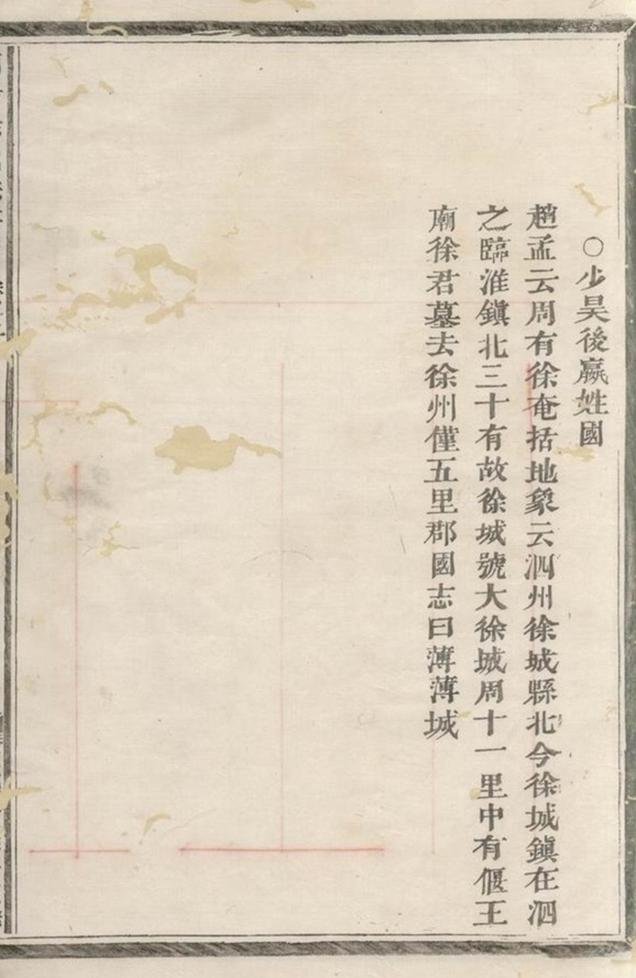 ○少昊後嬴姓國
趙孟云周有徐奄括地象云泗州徐城縣北今徐城鎮在泗
之臨淮鎮北三十有故徐城號大徐城周十一里中有偃王
廟徐君墓去徐州僅五里郡國志曰薄薄城